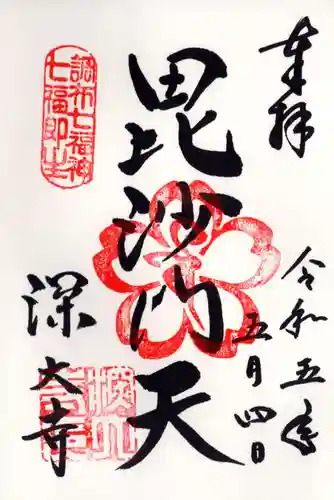 奉拝
令和五年
五月四日
毘沙門天
調布七福神
七福即生
深大寺